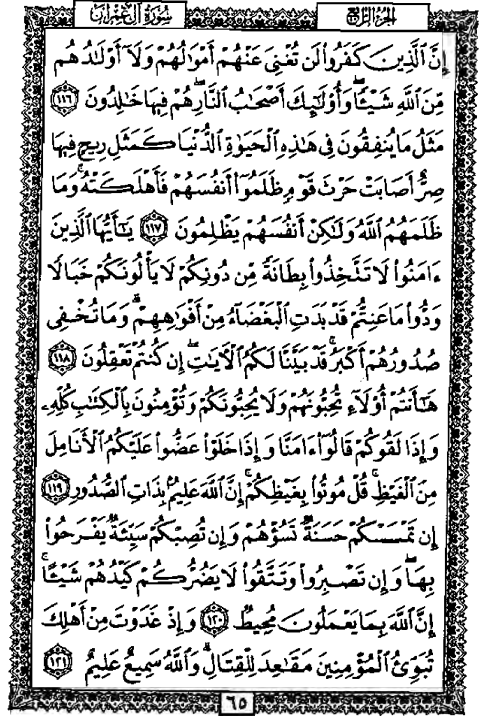 الجزء الرابع
سورة آل عمران
إِنَّ ٱلَّذِينَ كَفَرُواْ لَن تُغْنِيَ عَنْهُمْ أَمْوَٰلُهُمْ وَلَآ أَوْلَٰدُهُم
مِّنَ ٱللَّهِ شَيْـًٔا ۖ وَأُوْلَٰٓئِكَ أَصْحَٰبُ ٱلنَّارِ ۚ هُمْ فِيهَا خَٰلِدُونَ ١١٦
مَثَلُ مَا يُنفِقُونَ فِي هَٰذِهِ ٱلْحَيَوٰةِ ٱلدُّنْيَا كَمَثَلِ رِيحٍ فِيهَا
صِرٌّ أَصَابَتْ حَرْثَ قَوْمٍ ظَلَمُوٓاْ أَنفُسَهُمْ فَأَهْلَكَتْهُ ۚ وَمَا
ظَلَمَهُمُ ٱللَّهُ وَلَٰكِنْ أَنفُسَهُمْ يَظْلِمُونَ ١١٧ يَٰٓأَيُّهَا ٱلَّذِينَ
ءَامَنُواْ لَا تَتَّخِذُواْ بِطَانَةً مِّن دُونِكُمْ لَا يَأْلُونَكُمْ خَبَالًا
وَدُّواْ مَا عَنِتُّمْ قَدْ بَدَتِ ٱلْبَغْضَآءُ مِنْ أَفْوَٰهِهِمْ وَمَا تُخْفِي
صُدُورُهُمْ أَكْبَرُ ۚ قَدْ بَيَّنَّا لَكُمُ ٱلْأٓيَٰتِ ۖ إِن كُنتُمْ تَعْقِلُونَ ١١٨
هَٰٓأَنتُمْ أُوْلَآءِ تُحِبُّونَهُمْ وَلَا يُحِبُّونَكُمْ وَتُؤْمِنُونَ بِٱلْكِتَٰبِ كُلِّهِۦ
وَإِذَا لَقُوكُمْ قَالُوٓاْ ءَامَنَّا وَإِذَا خَلَوْاْ عَضُّواْ عَلَيْكُمُ ٱلْأَنَامِلَ
مِنَ ٱلْغَيْظِ ۚ قُلْ مُوتُواْ بِغَيْظِكُمْ ۗ إِنَّ ٱللَّهَ عَلِيمٌۢ بِذَاتِ ٱلصُّدُورِ ١١٩
إِن تَمْسَسْكُمْ حَسَنَةٌ تَسُؤْهُمْ وَإِن تُصِبْكُمْ سَيِّئَةٌ يَفْرَحُواْ
بِهَا ۖ وَإِن تَصْبِرُواْ وَتَتَّقُواْ لَا يَضُرُّكُمْ كَيْدُهُمْ شَيْـًٔا ۗ
إِنَّ ٱللَّهَ بِمَا يَعْمَلُونَ مُحِيطٌ ١٢٠ وَإِذْ غَدَوْتَ مِنْ أَهْلِكَ
تُبَوِّئُ ٱلْمُؤْمِنِينَ مَقَٰعِدَ لِلْقِتَالِ ۗ وَٱللَّهُ سَمِيعٌ عَلِيمٌ ١٢١
٦٥